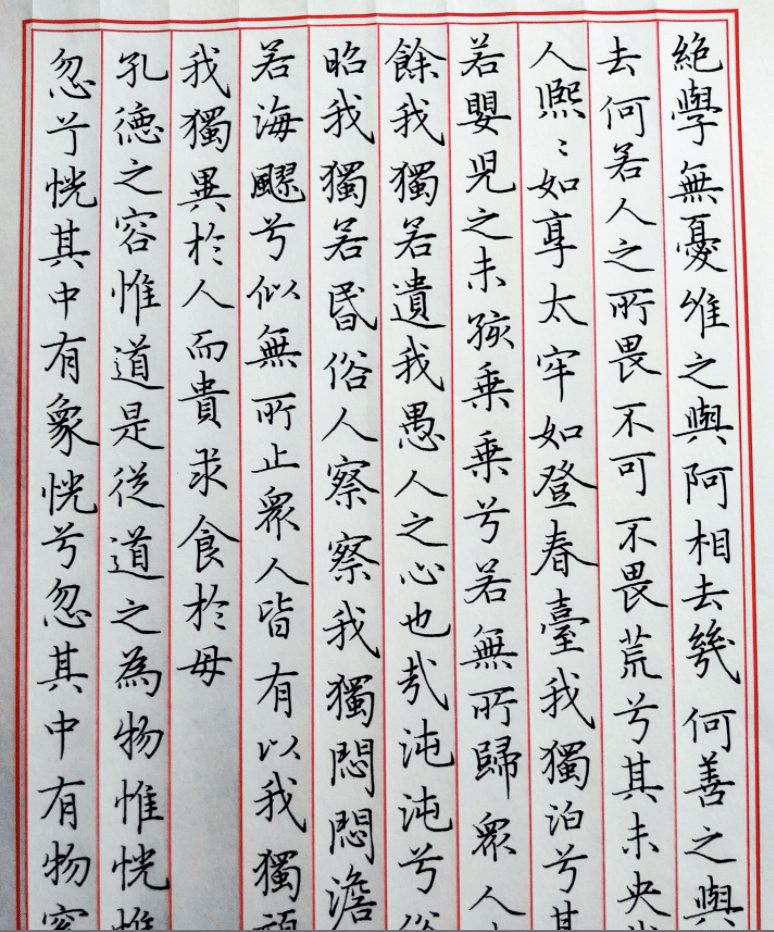 絶學無憂唯之與阿相去幾何善之與
去何若人之所畏不可不畏荒兮其未央
人熙〻如享太牢如登春臺我獨泊兮其
若嬰児之未孩乗乗兮若無所歸眾人
餘我獨若遺我愚人之心也㢤沌沌兮俗
昭我獨若昏俗人察察我獨悶悶澹
若海飂兮似無所止眾人皆有以我獨頑
我獨異於人而貴求食於母
孔德之容惟道是従道之為物惟恍惟
忽兮恍其中有象恍兮忽其中有物窈